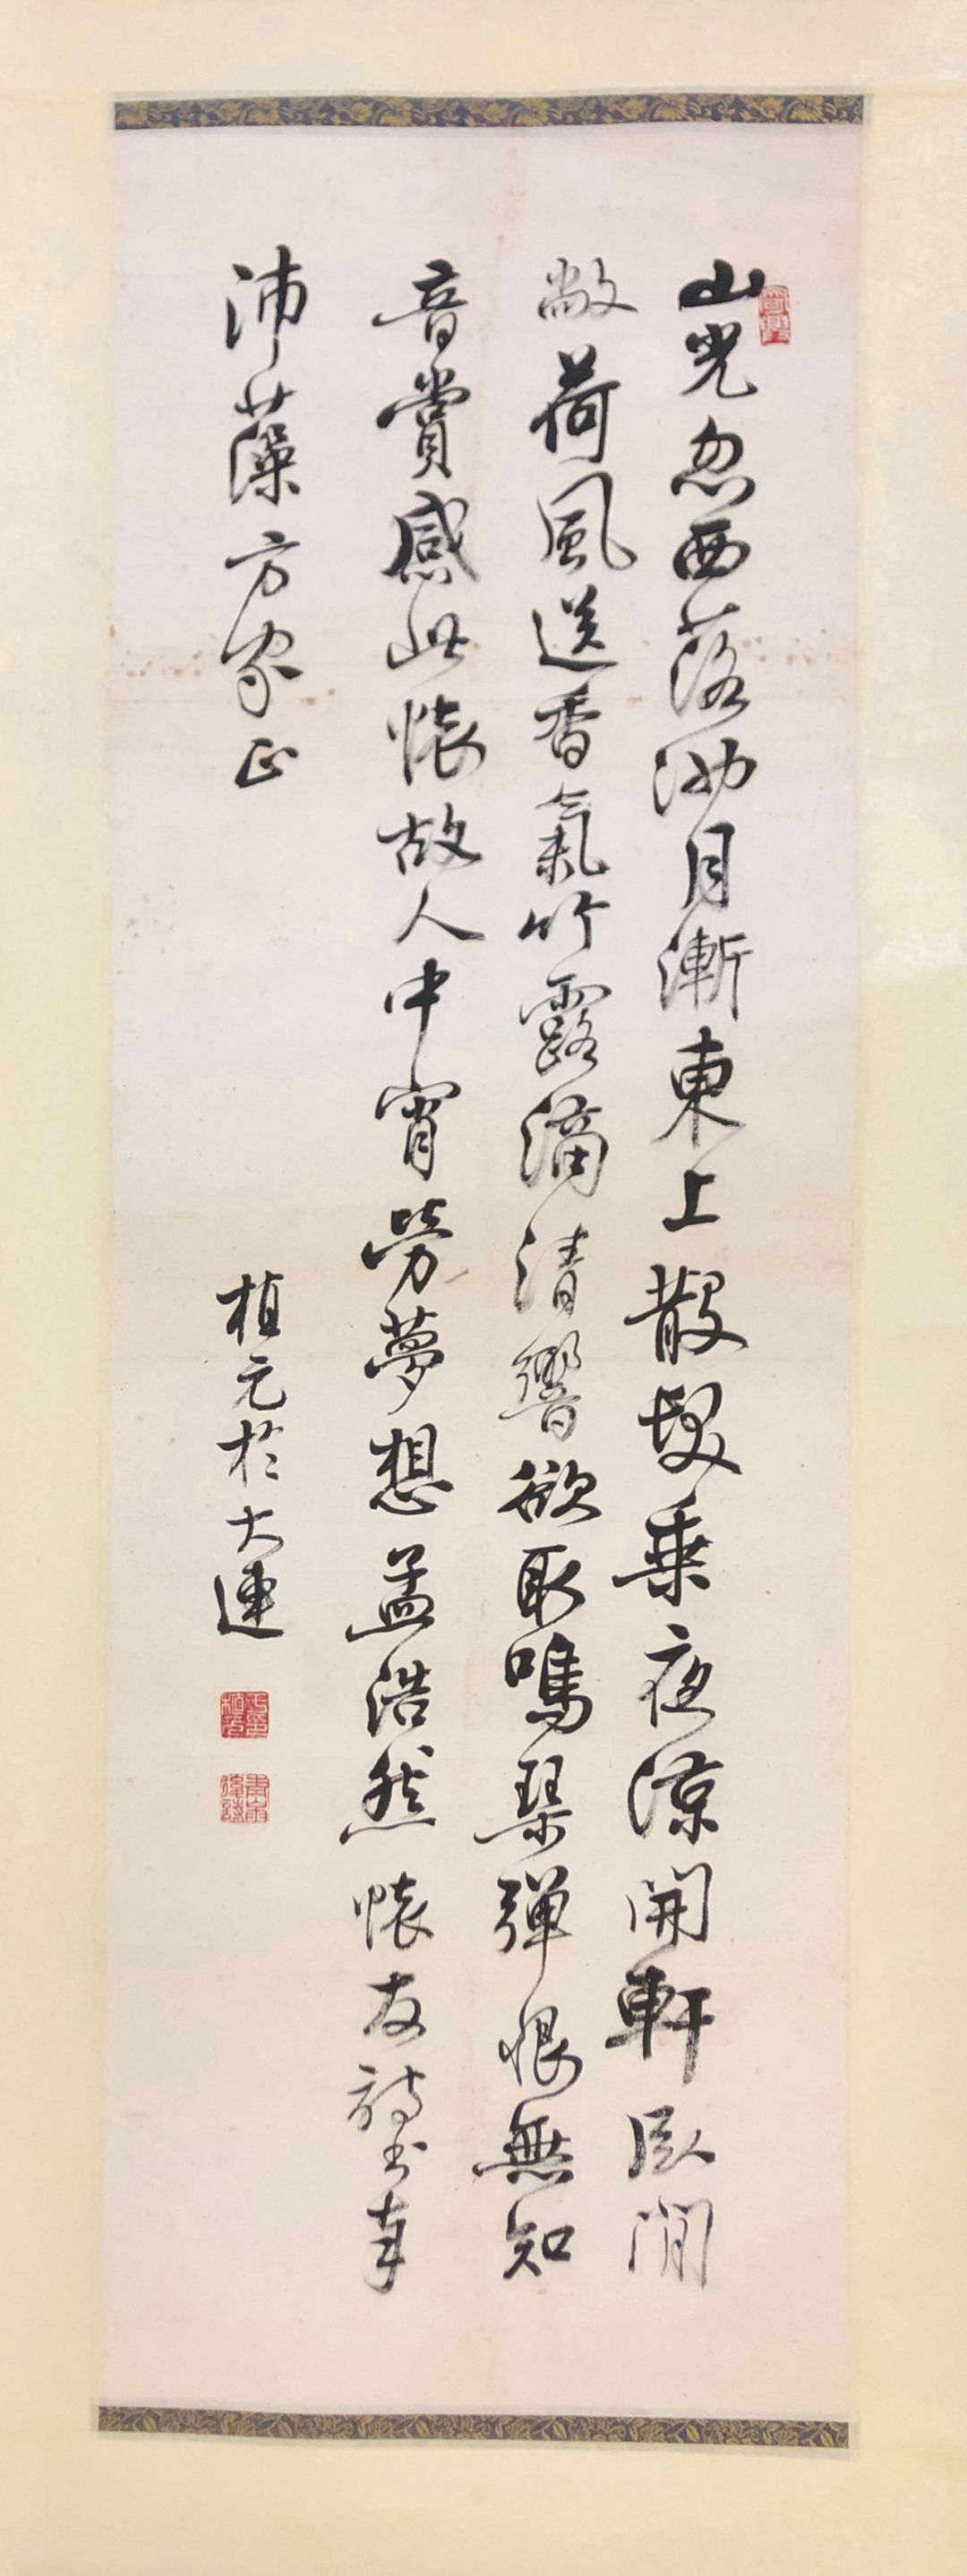 山光忽西落池月漸東上散髮乘夜涼開軒臥閒
敞荷風送香氣竹露滴清響欲取鳴琴彈恨無知
音賞感此懷故人中宵勞夢想孟浩然懷友詩書奉
沛藻方家正
植元於大連